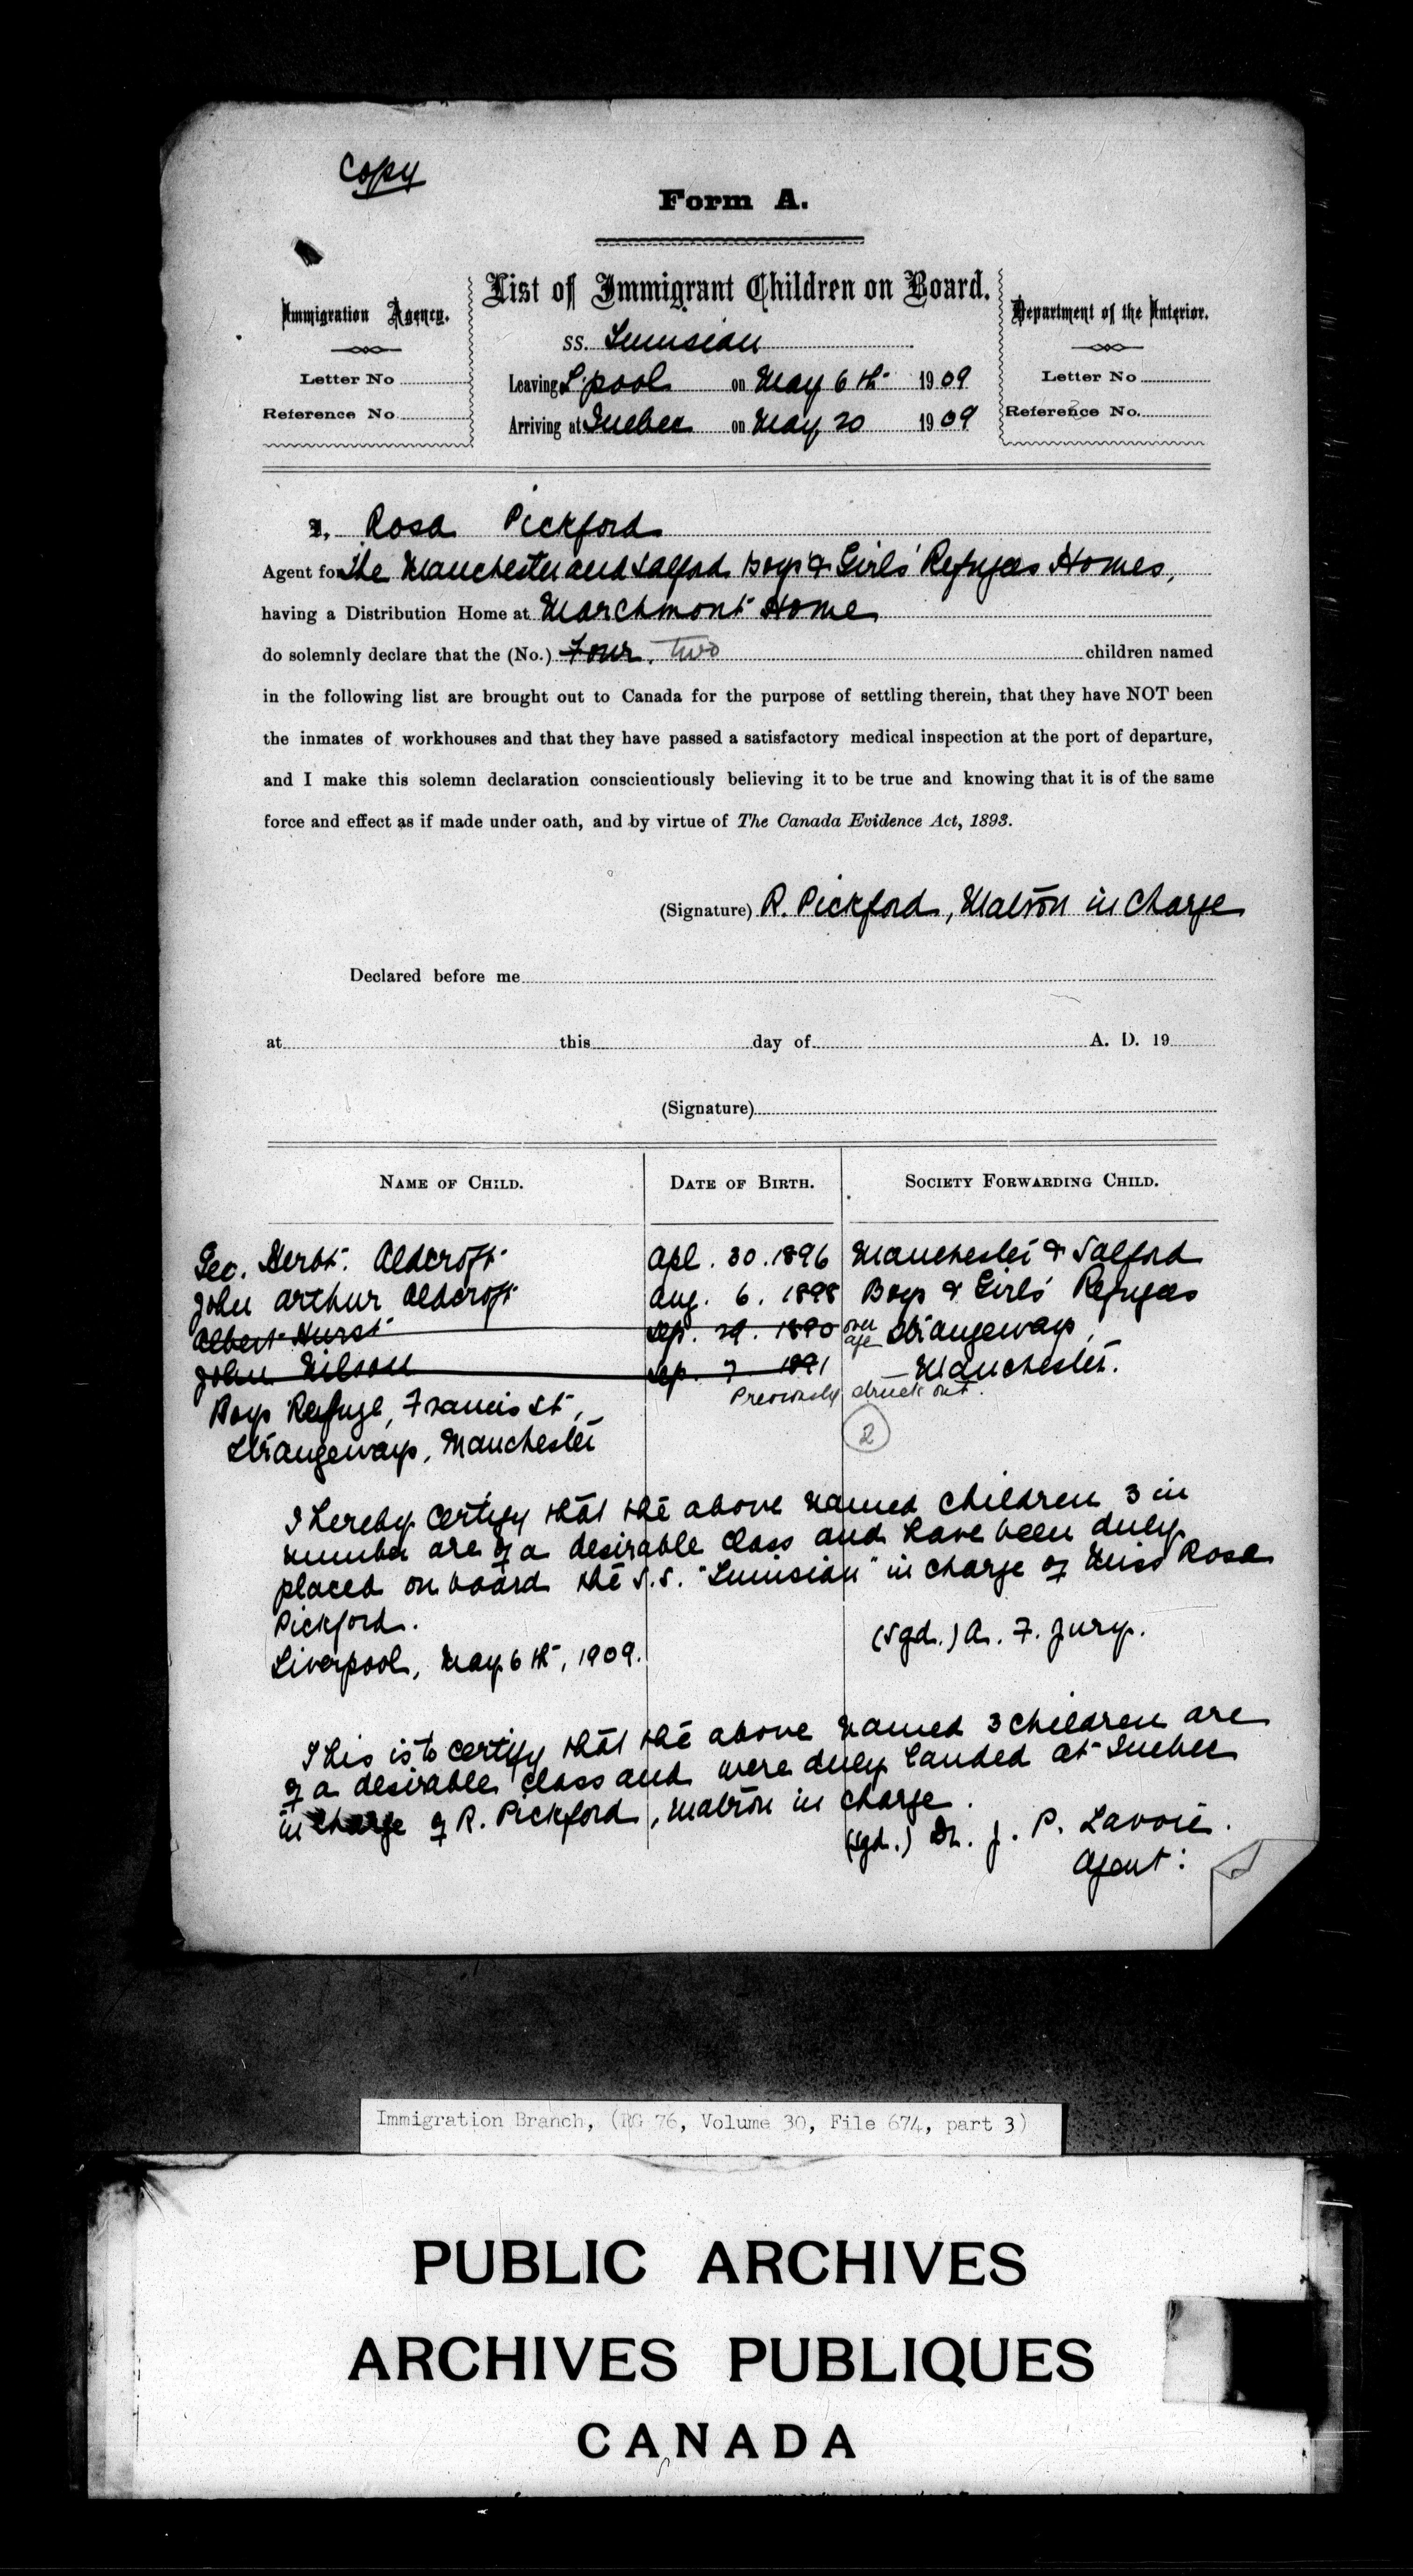 Copy
Form A.
List of Immigrant Children on Board.
Immigration Agency.
Letter No
Reference No
SS. Tunisian
Leaving L'pool on May 6th 1909
Arriving at Quebec on May 20 1909
Department of the Interior.
Letter No
Reference No.
I, Rosa Pickford
Agent for The Manchester and Salford Boys' & Girls' Refuges Homes,
having a Distribution Home at Marchmont Home
do solemnly declare that the (No.) Four. Two children named
in the following list are brought out to Canada for the purpose of settling therein, that they have NOT been
the inmates of workhouses and that they have passed a satisfactory medical inspection at the port of departure,
and I make this solemn declaration conscientiously believing it to be true and knowing that it is of the same
force and effect as if made under oath, and by virtue of The Canada Evidence Act, 1893.
(Signature) R. Pickford, Matron in Charge
Declared before me
at this day of A. D. 19
(Signature)
NAME OF CHILD. DATE OF BIRTH. SOCIETY FORWARDING CHILD.
Geo. Herbt. Aldcroft Apl. 30. 1896 Manchester & Salford
John Arthur Aldcroft Aug. 6. 1898 Boys & Girls' Refuges
Albert Hurst Sep. 29. 1890 over age Strangeways,
John Wilson Sep. 7 1891 Manchester.
Previously struck out.
Boys Refuge, Francis St,
Strangeways, Manchester
2
I hereby certify that the above named children 3 in
number are of a desirable class and have been duly
placed on board the S.S. "Tunisian" in charge of Miss Rosa
Pickford.
(sgd.) A. F. Jury.
Liverpool, May 6th, 1909.
This is to certify that the above named 3 children are
of a desirable class and were duly landed at Quebec
in charge of R. Pickford, Matron in charge.
(sgd.) Dr. J. P. Lavoie.
Agent.
Immigration Branch, (RG 76, Volume 30, File 674, part 3)
PUBLIC ARCHIVES
ARCHIVES PUBLIQUES
CANADA